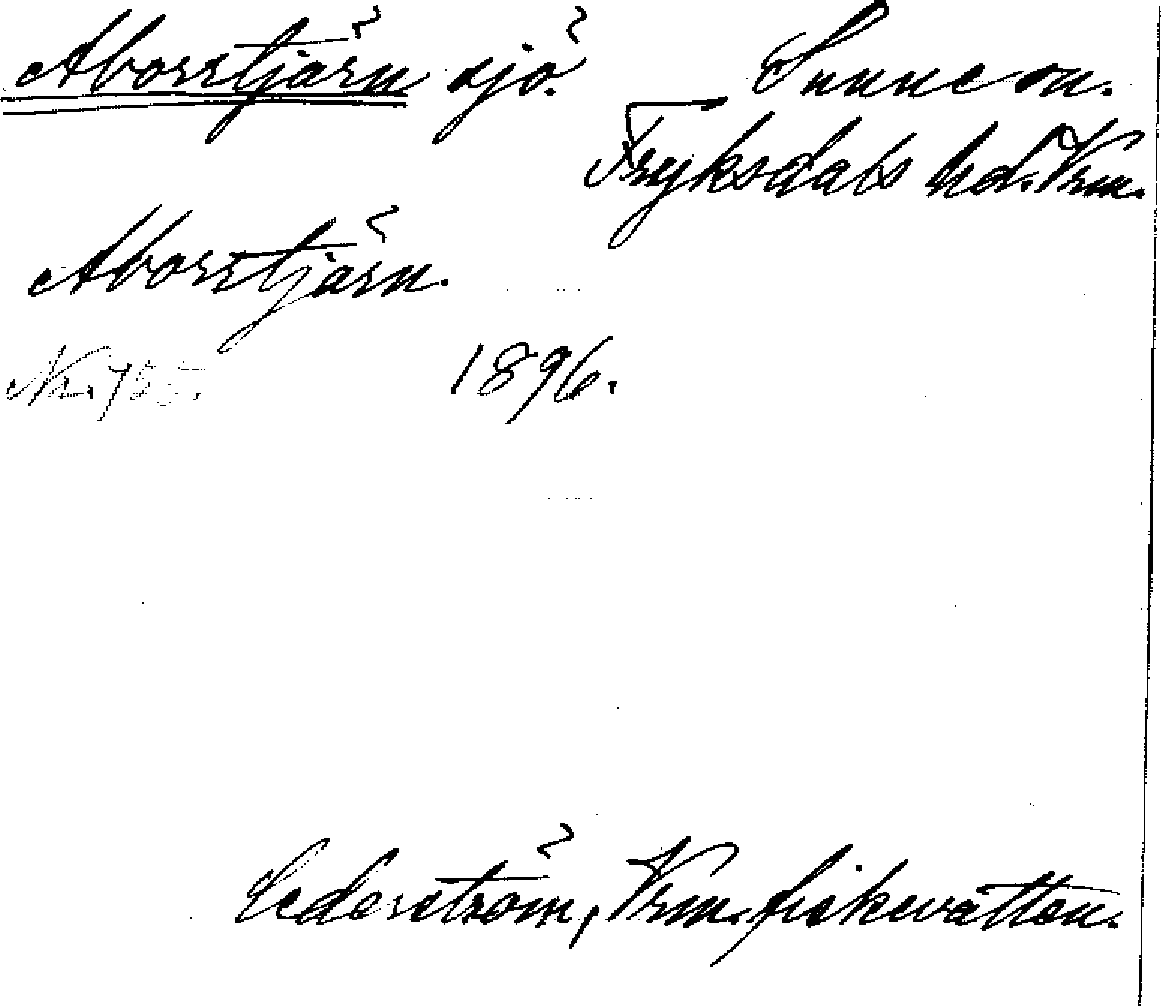 Aborrtjärn sjö. Sunne sn.
Fryksdals hd. Vrm.
Aborrtjärn.
No. 755. 1896.
Cederström, Vrm. fiskevatten.